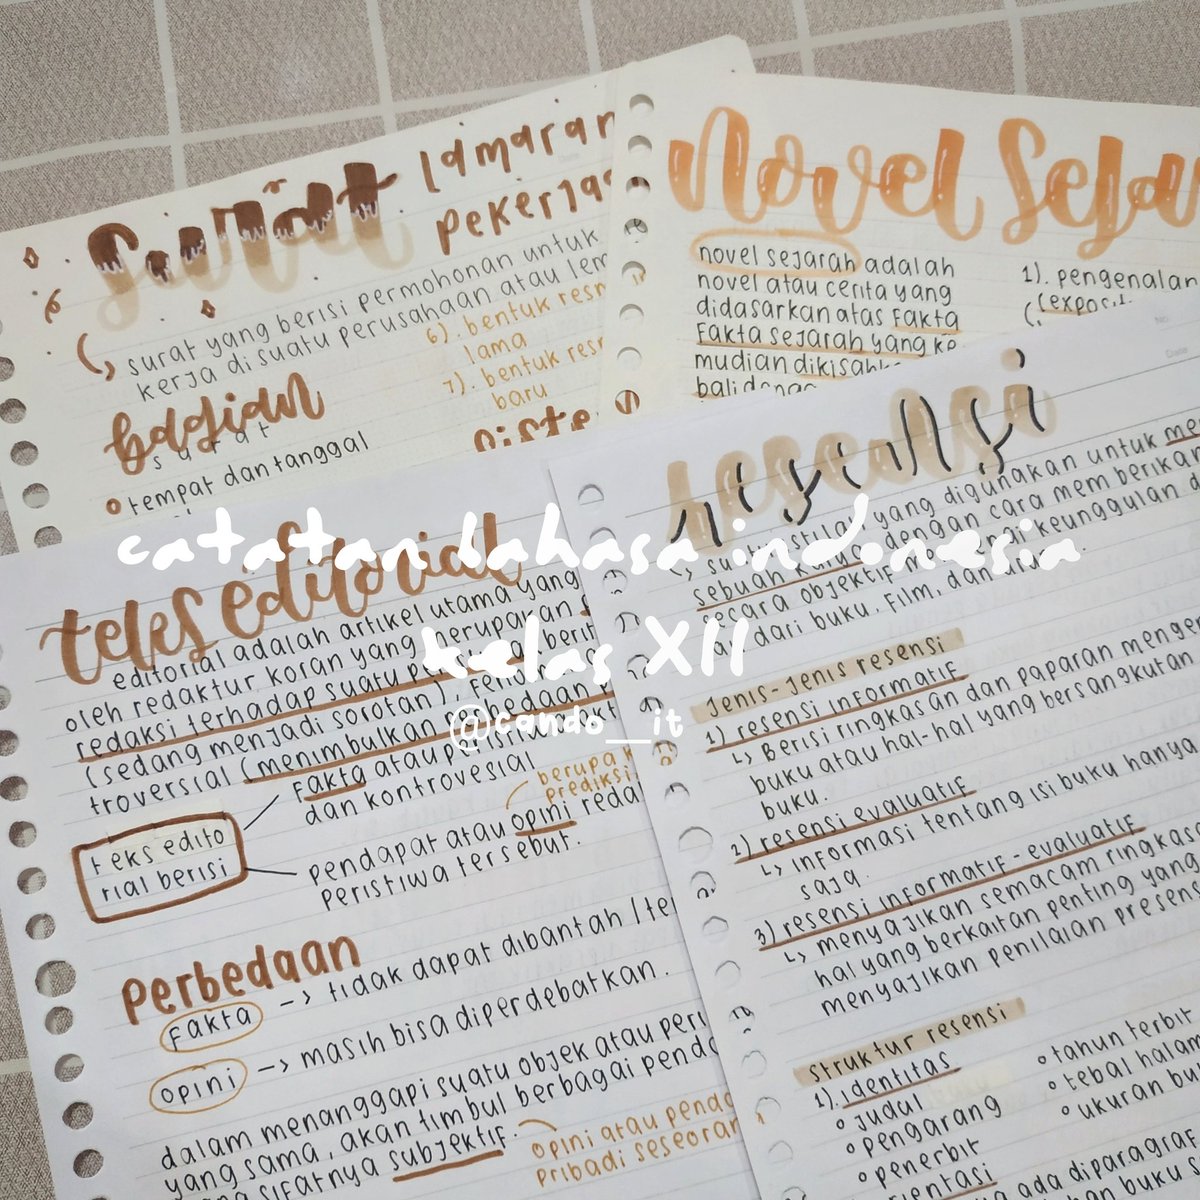 surat lamaran
pekerjaa
surat yang berisi permohonan untuk
kerja di suatu perusahaan atau lem
bagian
surat
tempat dan tanggal
6). bentuk resm
lama
7). bentuk resm
baru
siste
novel sejar
novel sejarah adalah
novel atau cerita yang
didasarkan atas fakta
fakta sejarah yang ke
mudian dikisahk
bali denga
1). pengenalan
(exposi
catatan bahasa indonesia
kelas XII
@cando__it
teks editorial
editorial adalah artikel utama yang
oleh redaktur koran yang merupakan
redaksi terhadap suatu
(sedang menjadi sorotan),
troversial (menimbulkan perbedaan
fakta atau peristiwa fakt
dan kontrovesial
teks edito
rial berisi
berupa k
prediksi
pendapat atau opini reda
peristiwa tersebut.
perbedaan
fakta -> tidak dapat dibantah / te
opini -> masih bisa diperdebatkan.
dalam menanggapi suatu objek atau peri
yang sama, akan timbul berbagai penda
yang sifatnya subjektif.
opini atau penda
pribadi seseoran
resensi
suatu tulisan yang digunakan untuk me
sebuah karya dengan cara memberikan
secara objektif mengenai keunggulan d
an dari buku, film, dan
Jenis-Jenis resensi
1) resensi informatif
Berisi ringkasan dan paparan menge
buku atau hal-hal yang bersangkutan
buku.
2) resensi evaluatif
informasi tentang isi buku hanya
saja.
3) resensi informatif-evaluatif
menyajikan semacam ringkasa
hal yang berkaitan penting yang
menyajikan penilaian presens
struktur resensi
1). identitas
judul
pengarang
penerbit
tahun terbit
tebal halam
ukuran bu
ada diparagraf